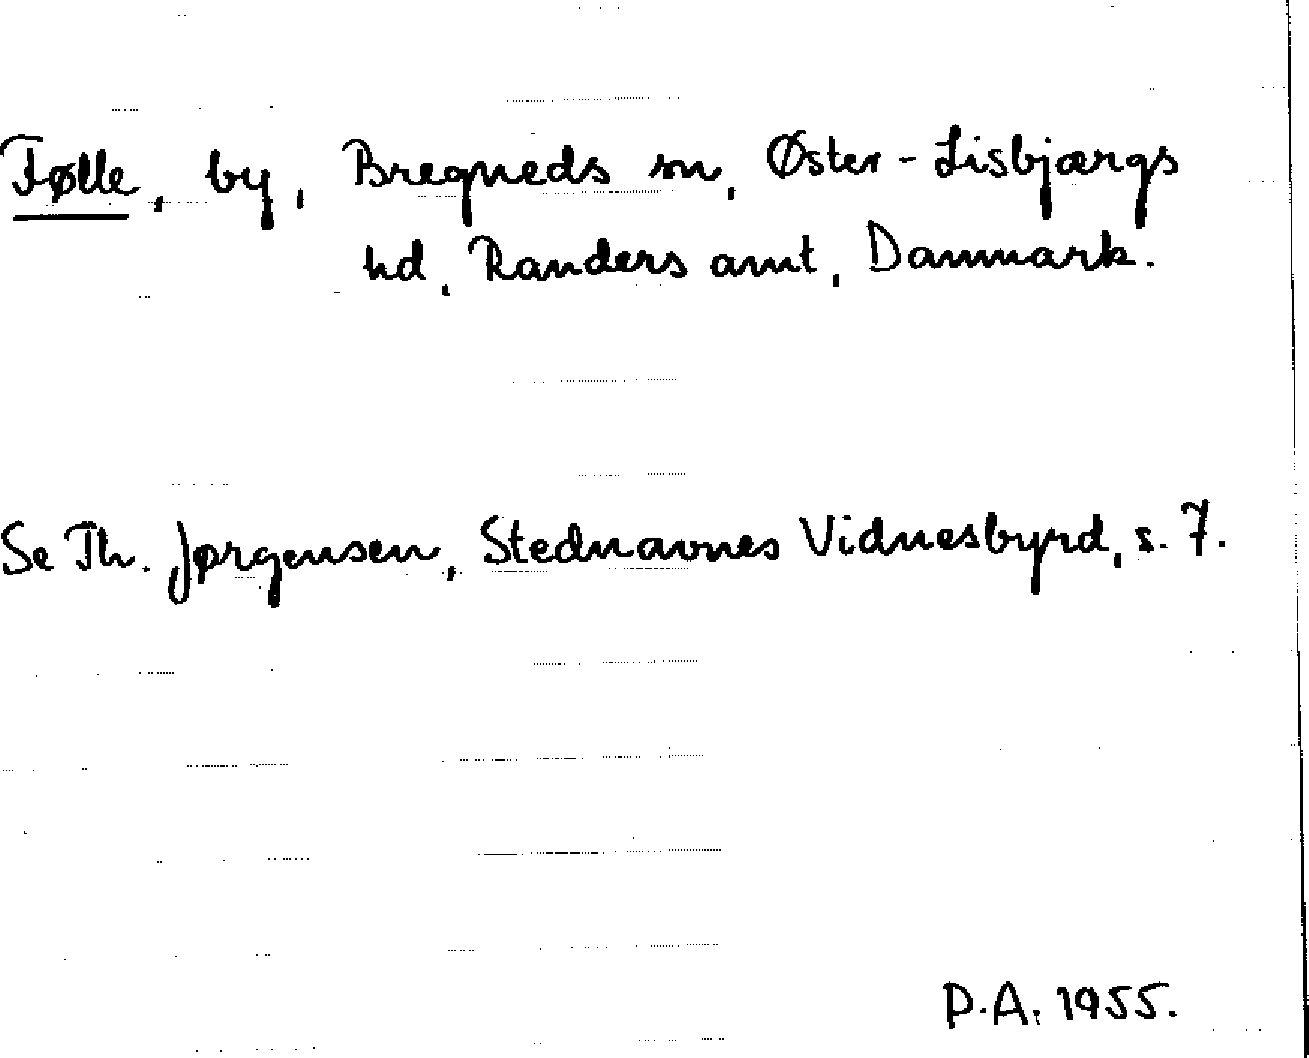 Følle, by, Bregneds sn, Øster-Lisbjærgs
hd, Randers amt, Danmark.
Se Th. Jørgensen, Stednavnes Vidnesbyrd, s. 7.
P.A. 1955.